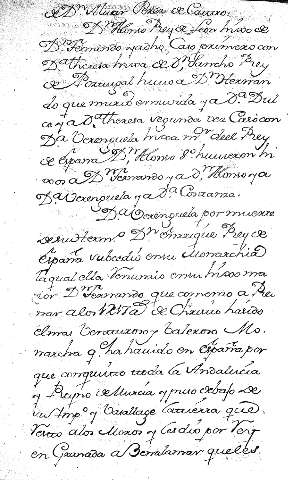 de Dn Alvar Perez de Castro.
Dn Alonso Rey de Leon hixo de
Dn Fernando ya dho, Caso primero con
Da Theresa hixa de Dn Sancho Rey
de Portugal huuo a Dn Hernan
do que murió en su vida y a Da Dul
ce y a Da Theresa segunda vez Casó con
Da Verenguela hixa mor del Rey
de españa Dn Alonso 8o huuieron hi
xos a Dn Fernando y a Dn Alonso y a
Da Verenguela y a Da Constanza.
Da Verenguela por muerte
de su hermo Dn enrrique Rey de
españa subcedio en su Monarchia
la qual ella renuncio en su hixo ma
ior Dn Fernando que comenso a Rei
nar a los 1217 as de Christo ha sido
el mas Venturoso y Valeroso Mo
narcha q ha hauido en españa por
que conquisto toda la Andalucia
y Reyno de Murcia y puso debaxo de
su Impo y Vasallage la tierra que
a los Moros y les dio por Rey
en Granada a Benalamar que les